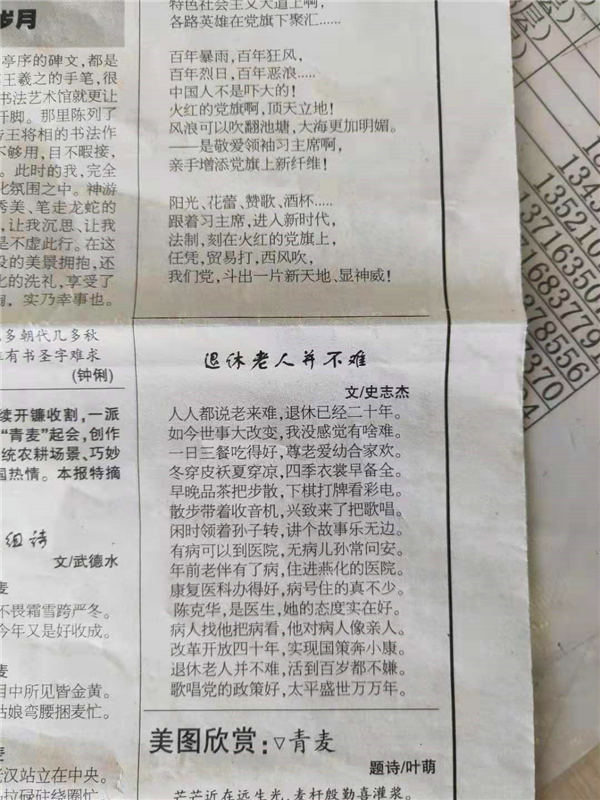 岁月
亭序的碑文，都是
王羲之的手笔，很
书法艺术馆就更让
开脚。那里陈列了
帝王将相的书法作
不够用，目不暇接，
。此时的我，完全
化氛围之中。神游
秀美、笔走龙蛇的
，让我沉思、让我
是不虚此行。在这
没的美景拥抱，还
化的洗礼，享受了
陶，实乃幸事也。
几多朝代几多秋
唯有书圣字难求
(钟俐)
续开镰收割，一派
“青麦”起会，创作
统农耕场景、巧妙
国热情。本报特摘
组诗
文/武德水
麦
不畏霜雪跨严冬。
今年又是好收成。
麦
目中所见皆金黄。
姑娘弯腰捆麦忙。
麦
老汉站立在中央。
马拉碌碡绕圈忙。
特色社会主义大道上啊，
各路英雄在党旗下聚汇……
百年暴雨，百年狂风，
百年烈日，百年恶浪……
中国人不是吓大的！
火红的党旗啊，顶天立地！
风浪可以吹翻池塘，大海更加明媚。
——是敬爱领袖习主席啊，
亲手增添党旗上新纤维！
阳光、花蕾、赞歌、酒杯……
跟着习主席，进入新时代，
法制，刻在火红的党旗上，
任凭，贸易打，西风吹，
我们党，斗出一片新天地、显神威！
退休老人并不难
文/史志杰
人人都说老来难，退休已经二十年。
如今世事大改变，我没感觉有啥难。
一日三餐吃得好，尊老爱幼合家欢。
冬穿皮袄夏穿凉，四季衣裳早备全。
早晚品茶把步散，下棋打牌看彩电。
散步带着收音机，兴致来了把歌唱。
闲时领着孙子转，讲个故事乐无边。
有病可以到医院，无病儿孙常问安。
年前老伴有了病，住进燕化的医院。
康复医科办得好，病号住的真不少。
陈克华，是医生，她的态度实在好。
病人找他把病看，他对病人像亲人。
改革开放四十年，实现国策奔小康。
退休老人并不难，活到百岁都不嫌。
歌唱党的政策好，太平盛世万万年。
美图欣赏：▽青麦
题诗/叶萌
芒芒近在远生光，麦秆殷勤喜灌浆。
层)
1352101
137163507
716837791
878556